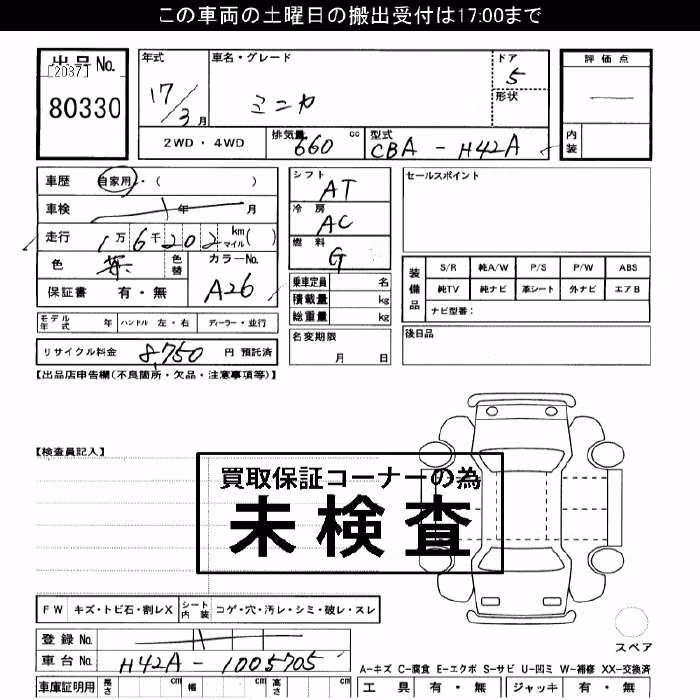 この車両の土曜日の搬出受付は17:00まで
出品No.
[2037]
80330
年式
17/3月
車名・グレード
ミニカ
ドア
5
形状
評価点
内装
2WD・4WD
排気量 660 cc
型式 CBA - H42A
車歴 自家用・( )
車検 年 月
走行 1万6千202 km マイル( )
色
色替
カラーNo.
A26
保証書 有・無
シフト AT
冷房 AC
燃料 G
乗車定員 名
積載量 kg
総重量 kg
名変期限
月 日
セールスポイント
装備品
S/R 純A/W P/S P/W ABS
純TV 純ナビ 革シート 外ナビ エアB
ナビ型番:
後日品
モデル年式 年 ハンドル 左・右 ディーラー・並行
リサイクル料金 8,750 円 預託済
【出品店申告欄(不良箇所・欠品・注意事項等)】
【検査員記入】
買取保証コーナーの為
未検査
FW キズ・トビ石・割レX シート内装 コゲ・穴・汚レ・シミ・破レ・スレ
登録No.
車台No. H42A - 1005705
スペア
A-キズ C-腐食 E-エクボ S-サビ U-凹ミ W-補修 XX-交換済
車庫証明用 長さ cm 幅 cm 高さ cm
工具 有・無 ジャッキ 有・無